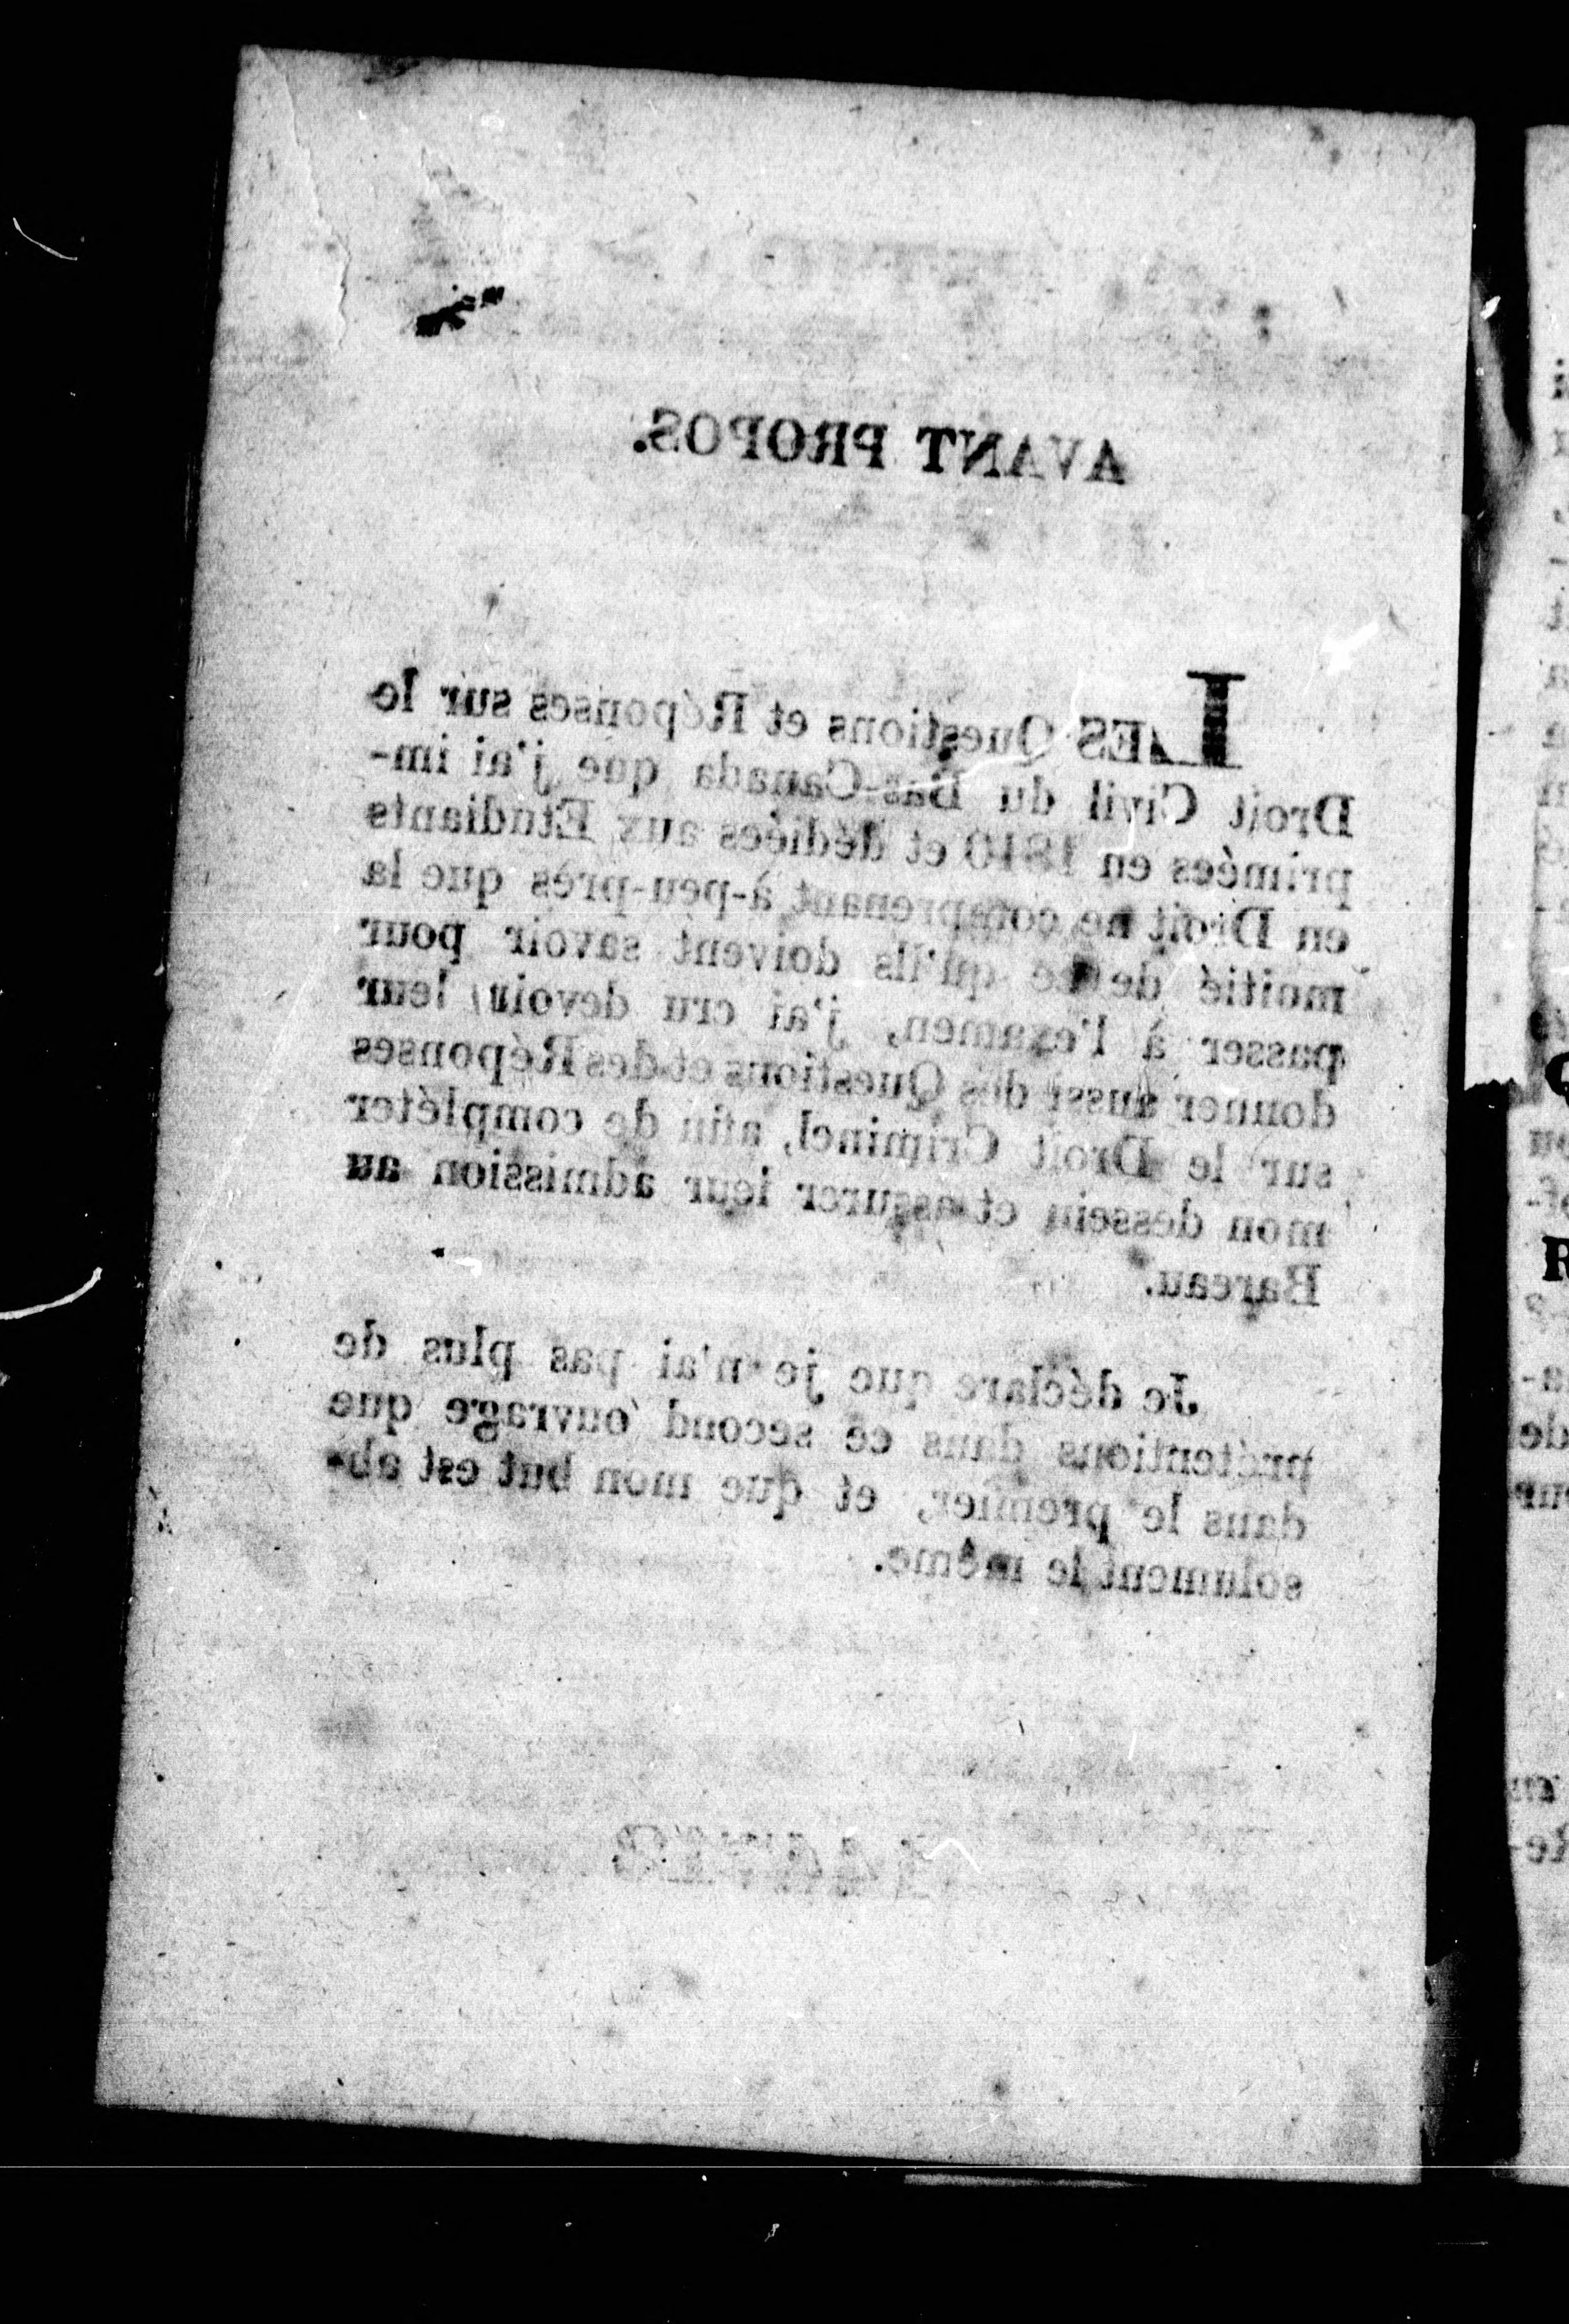 AVANT PROPOS.
LES Questions et Réponses sur le
Droit Civil du Bas-Canada que j'ai im-
primées en 1810 et dédiées aux Etudiants
en Droit ne comprenant à-peu-près que la
moitié de ce qu'ils doivent savoir pour
passer à l'examen, j'ai cru devoir leur
donner aussi des Questions et des Réponses
sur le Droit Criminel, afin de compléter
mon dessein et assurer leur admission au
Bareau.
Je déclare que je n'ai pas plus de
prétentions dans ce second ouvrage que
dans le premier, et que mon but est ab-
solument le même.